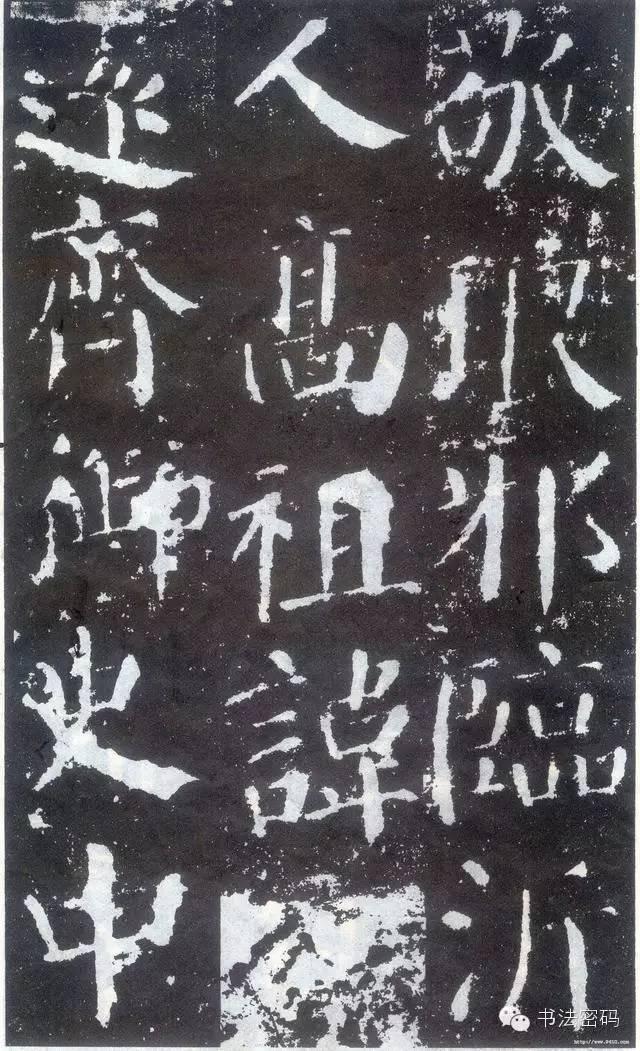 敬琅邪臨沂
人高祖諱
遠齊御史中
书法密码